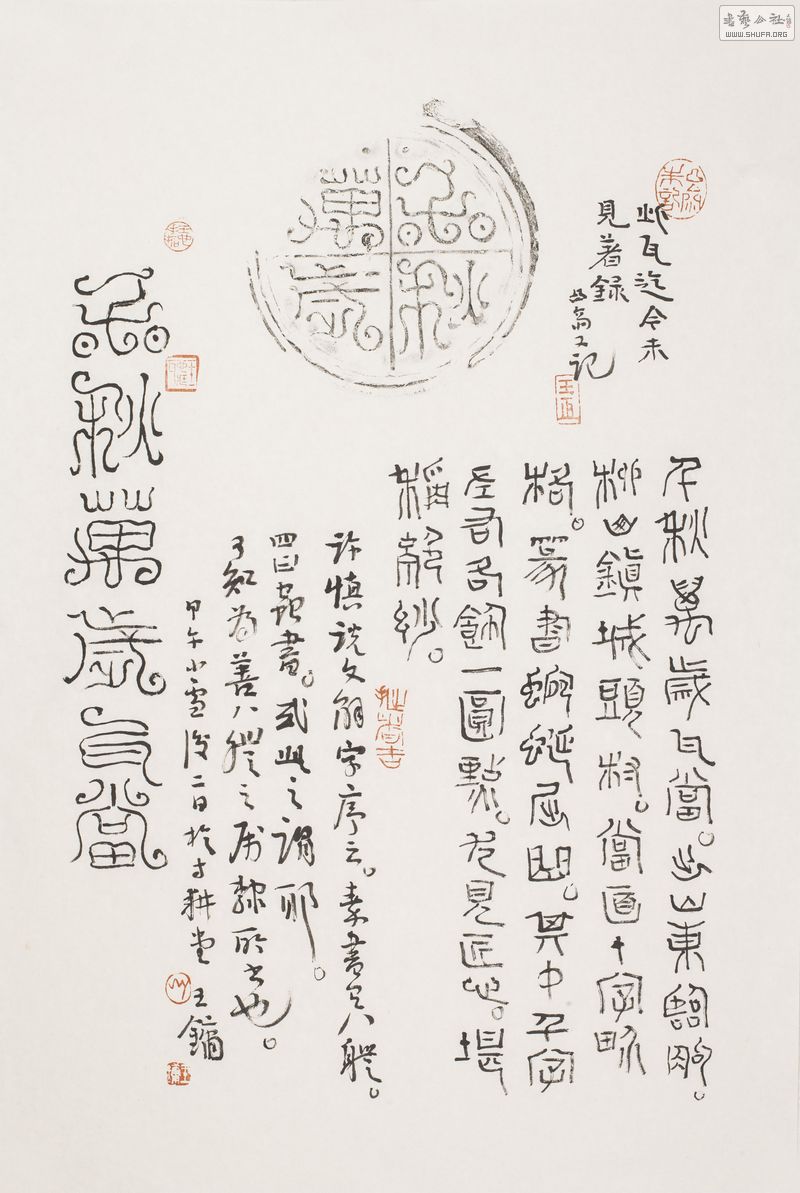 書藝公社
WWW.SHUFA.ORG
千秋
萬歲
此瓦迄今未
見著録
又記
千秋萬歲瓦當
千秋萬歲瓦當。出山東臨朐
柳山鎮城頭村。當面十字界
格。篆書蜿蜒屈曲。其中千字
左右各飾一圓點。尤見匠心。堪
稱絕妙。
許慎說文解字序云。秦書有八體。
四曰蟲書。或此之謂耶。
乃知為善八體之屬隸所書也。
甲午小雪後二日於寸耕堂王鏞